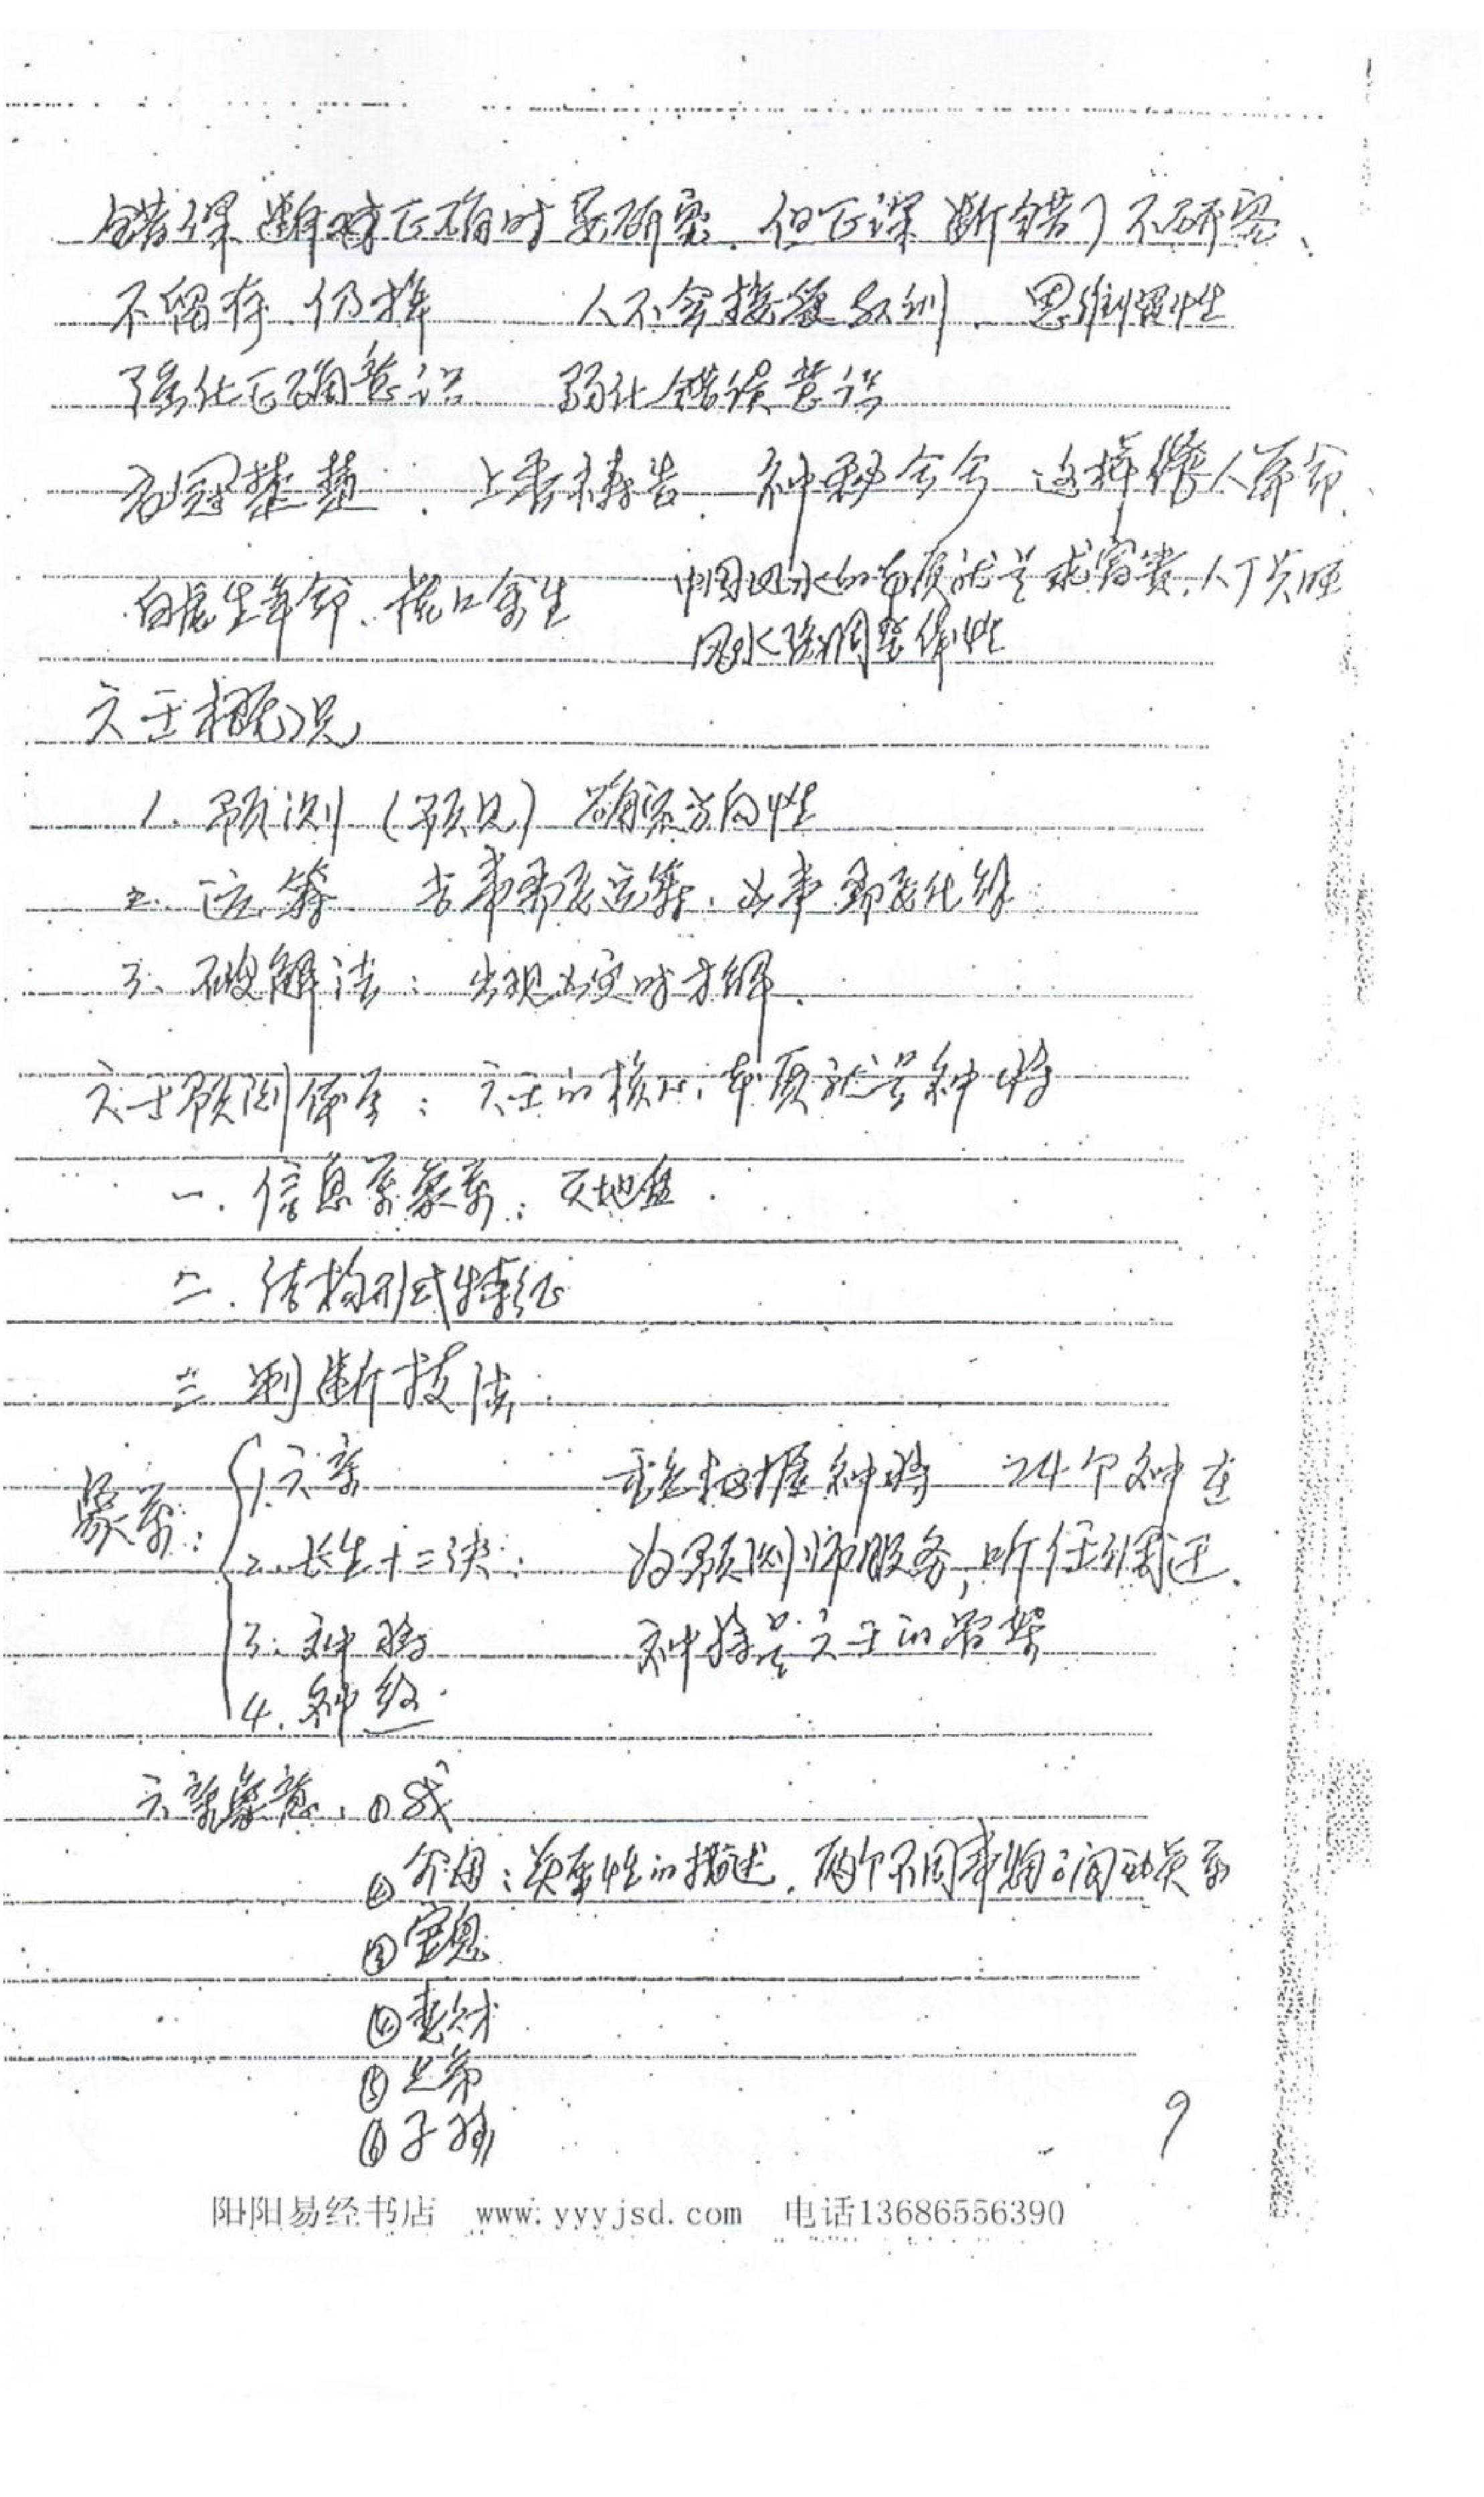 错课断对正确时要研究、但正课断错了不研究、
不留存 仍掉 人不会接受教训、思维惯性
强化正确意识 弱化错误意识
衣冠楚楚、上香祷告、神秘兮兮 这样像人算命、
白虎坐年命、横口舍生 中国风水的本质就是求富贵、人丁兴旺
风水强调整体性
六壬概况
1. 预测(预见) 确定方向性
2. 运筹 吉事要运筹、凶事要化解
3. 破解法: 出现凶灾时才解.
六壬预测体系: 六壬的核心、本质就是神将
一. 信息系象系: 天地盘.
二. 结构形式特征
三. 判断技法.
象系: 1. 六亲 重点把握神将 24个神在
2. 长生十二诀: 为预测师服务, 听任调遣.
3. 神将 神将是六壬的骨架
4. 神煞.
六亲象意: ①我
②父母: 关系性的描述. 两个不同事物之间的关系
③官鬼
④妻财
⑤兄弟
⑥子孙
9
阳阳易经书店 www.yyyjsd.com 电话13686556390